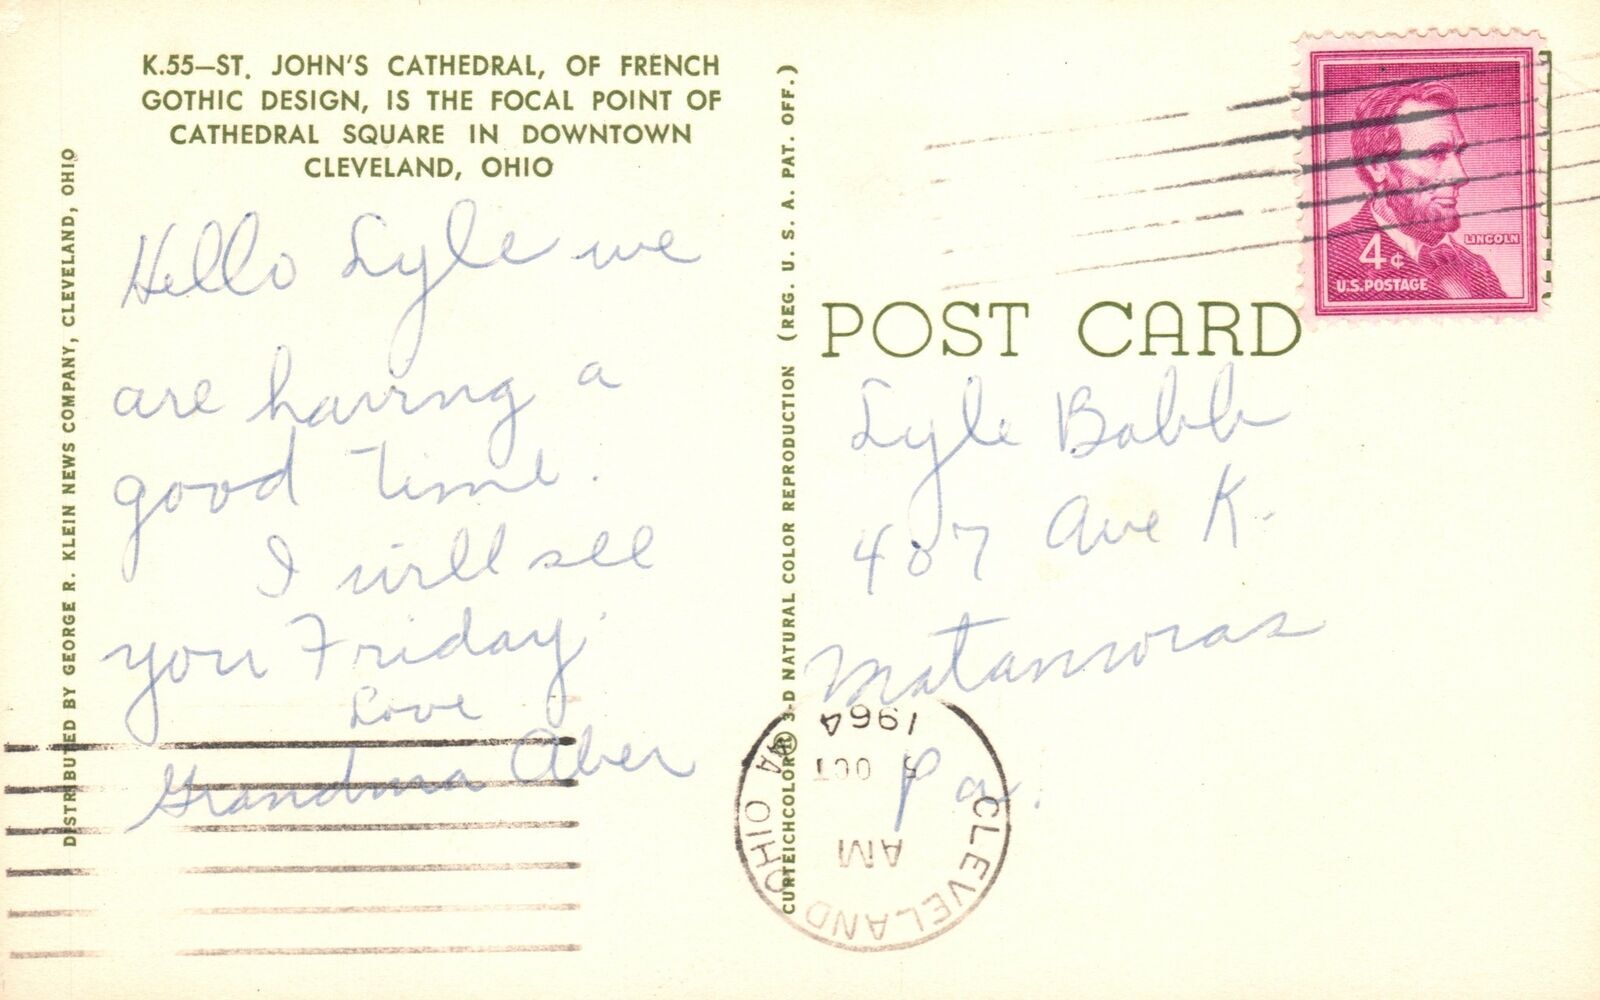 K.55—ST. JOHN'S CATHEDRAL, OF FRENCH
GOTHIC DESIGN, IS THE FOCAL POINT OF
CATHEDRAL SQUARE IN DOWNTOWN
CLEVELAND, OHIO
Hello Lyle we
are having a
good time.
I will see
you Friday.
Love
Grandma Aber
DISTRIBUTED BY GEORGE R. KLEIN NEWS COMPANY, CLEVELAND, OHIO
CURTEICHCOLOR® 3-D NATURAL COLOR REPRODUCTION (REG. U. S. A. PAT. OFF.)
POST CARD
LINCOLN
4¢
U.S. POSTAGE
Lyle Babb
407 Ave K.
Matamoras
Pa.
CLEVELAND OHIO
AM
5 OCT
1964